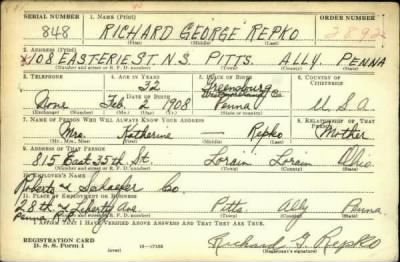 SERIAL NUMBER 1. NAME (Print) ORDER NUMBER
848 RICHARD GEORGE REPKO 2892
(First) (Middle) (Last)
2. ADDRESS (Print)
108 EASTERIE ST N.S. PITTS. ALLY. PENNA
(Number and street or R. F. D. number) (Town) (County) (State)
3. TELEPHONE 4. AGE IN YEARS 5. PLACE OF BIRTH 6. COUNTRY OF CITIZENSHIP
32 Greensburg
Westmoreland Co
DATE OF BIRTH
None Feb. 2 1908 Penna U.S.A
(Exchange) (Number) (Mo.) (Day) (Yr.) (State or country)
7. NAME OF PERSON WHO WILL ALWAYS KNOW YOUR ADDRESS 8. RELATIONSHIP OF THAT PERSON
Mrs. Katherine — Repko Mother
(Mr., Mrs., Miss) (First) (Middle) (Last)
9. ADDRESS OF THAT PERSON
815 East 35th St. Lorain Lorain Ohio
(Number and street or R. F. D. number) (Town) (County) (State)
10. EMPLOYER'S NAME
Roberts & Schaefer Co.
11. PLACE OF EMPLOYMENT OR BUSINESS
28th & Liberty Ave. Pitts. Ally Penna.
Penna R.R.
(Number and street or R. F. D. number) (Town) (County) (State)
I AFFIRM THAT I HAVE VERIFIED ABOVE ANSWERS AND THAT THEY ARE TRUE.
REGISTRATION CARD
D. S. S. Form 1 (over) 16—17105 Richard G. Repko
(Registrant's signature)